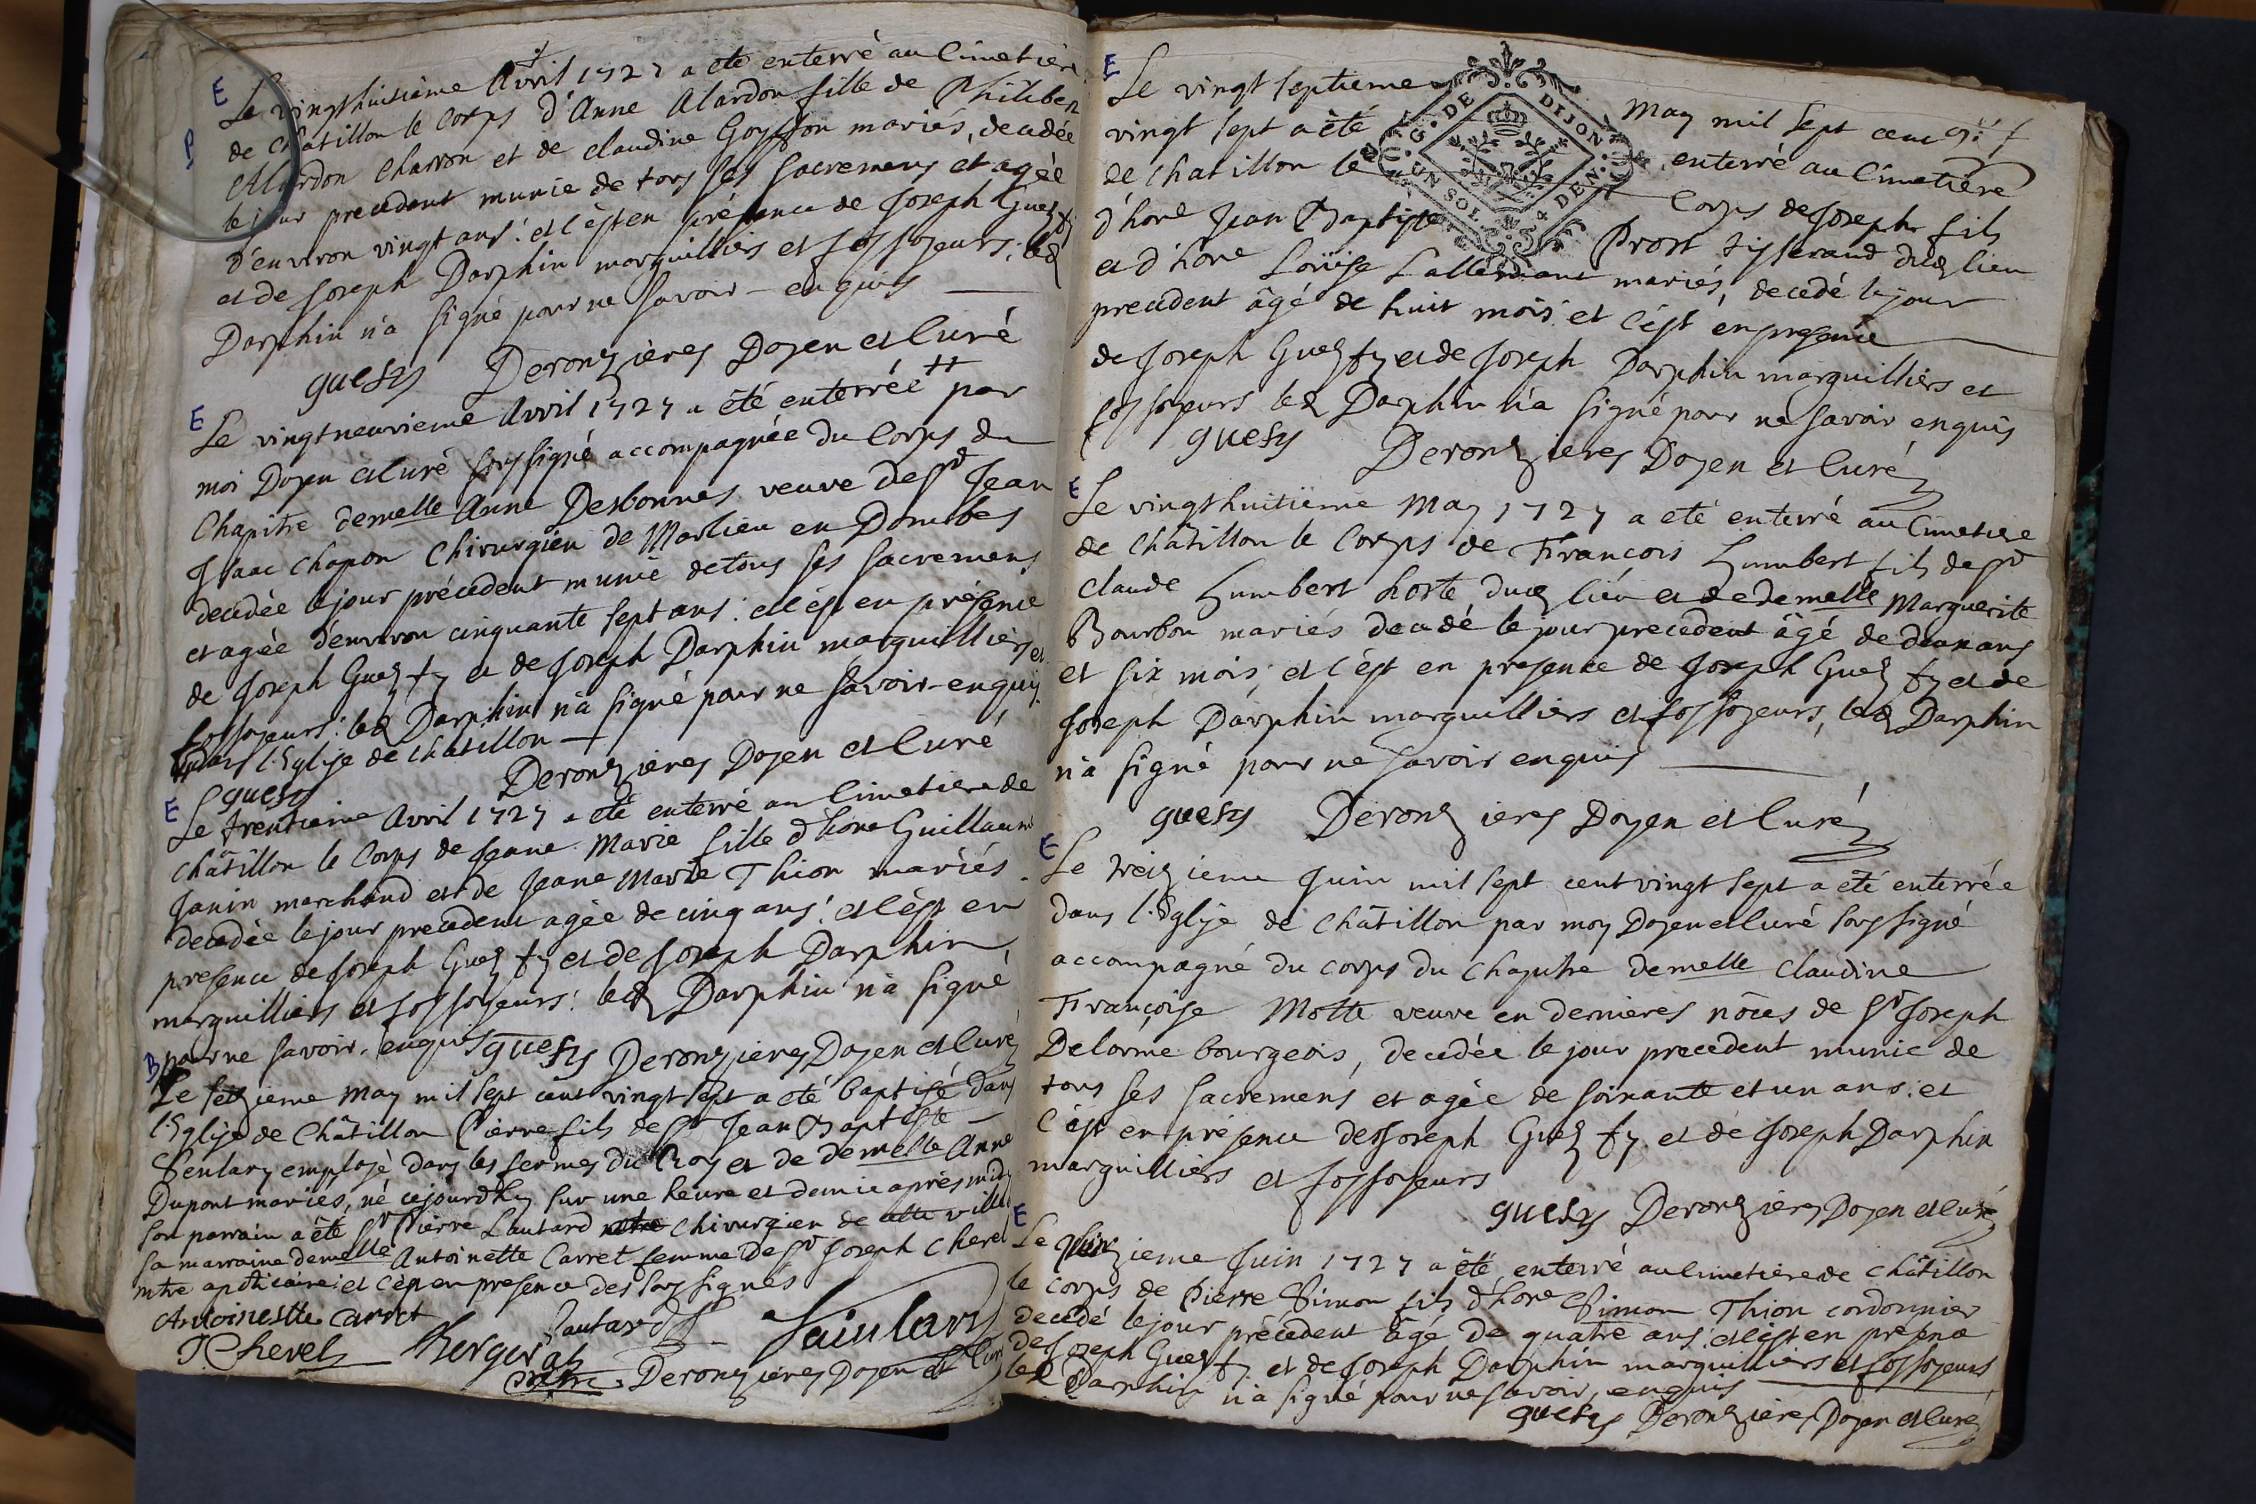 E
Le vingthuitième Avril 1727 a eté enterré au Cimetiere
P
de Châtillon le Corps d'Anne Alardon fille de Philiber
Alardon Charron et de claudine Goyffon mariés, decedée
le jour precedent munie de tous ses sacremens et agée
d'environ vingt ans: et c'est en présence de Joseph Guezty
et de Joseph Darphin marguilliers et fossoyeurs; led
Darphin n'a signé pour ne savoir enquis
guesty Deronzieres Doyen et Curé
E
Le vingtneuvieme Avril 1727 a été enterrée ++ par
moi Doyen et Curé soussigné accompagnée du Corps du
Chapitre demelle Anne Desbonnes veuve de Sr Jean
Isaac Chapon Chirurgien de Marlieu en Dombes
decedée le jour précedent munie de tous ses sacremens
et agée d'environ cinquante sept ans: et c'est en présence
de Joseph Guezty et de Joseph Darphin marguilliers et
fossoyeurs: led Darphin n'a signé pour ne savoir enquis
++ dans l'Eglise de châtillon
guesty Deronzieres Doyen et Curé
E
Le trentieme Avril 1727 a eté enterré au Cimetiere de
châtillon le Corps de Jeane Marie fille d'hone Guillaume
Janin marchand et de Jeane Marie Thion mariés
decedée le jour precedent agée de cinq ans: et c'est en
presence de Joseph Guezty et de Joseph Darphin
marguilliers et fossoyeurs: led Darphin n'a signé
pour ne savoir, enquis guesty Deronzieres Doyen et Curé
B
Le seizieme May mil sept cent vingt sept a eté baptisé dans
l'Eglise de Châtillon Pierre fils de Sr Jean Baptiste
Senlary employé dans les fermes du Roy et de demelle Anne
Dupont mariés, né cejourdhuy sur une heure et demie après midy
son parrain a été Sr Pierre Lautard chirurgien de cette ville
sa marraine demelle Antoinette Carret femme de Sr Joseph Cherel
mtre apoticaire: et c'est en presence des soussignés
Antoinette carret Lautard Sainlary
J. Cherel prêtre Deronzieres Doyen et Curé
E
Le vingt septieme May mil sept cent
G. DE DIJON. UN SOL 4 DEN.
vingt sept a été enterré au Cimetière
de chatillon le Corps de Joseph fils
d'hone Jean Baptiste Prost tisserand dud lieu
et d'hone Loüise Lallemant mariés, decedé le jour
precedent âgé de huit mois: et c'est en presence
de Joseph Guezty et de Joseph Darphin marguilliers et
fossoyeurs led Darphin n'a signé pour ne savoir enquis
guesty Deronzieres Doyen et Curé
E
Le vingthuitieme May 1727 a eté enterré au Cimetiere
de châtillon le Corps de François Humbert fils de Sr
claude Humbert hoste dud lieu et de demelle Marguerite
Bourbon mariés decedé le jour precedent âgé de deux ans
et six mois: et c'est en presence de Joseph Guezty et de
Joseph Darphin marguilliers et fossoyeurs, led Darphin
n'a signé pour ne savoir enquis
guesty Deronzieres Doyen et Curé
E
Le treizieme Juin mil sept cent vingt sept a eté enterrée
dans l'Eglise de Châtillon par moy Doyen et Curé soussigné
accompagné du corps du Chapitre demelle claudine
Françoise Motte veuve en dernieres nôces de Sr Joseph
Delorme bourgeois, decedée le jour precedent munie de
tous ses sacremens et agée de soixante et un ans: et
c'est en présence de Joseph Guezty et de Joseph Darphin
marguilliers et fossoyeurs
guesty Deronzieres Doyen et Curé
E
Le quinzieme Juin 1727 a été enterré au Cimetiere de châtillon
le corps de Pierre Simon fils d'hone Simon Thion cordonnier
decedé le jour précedent âgé de quatre ans: et c'est en presence
de Joseph Guezty et de Joseph Darphin marguilliers et fossoyeurs
led Darphin n'a signé pour ne savoir, enquis
guesty Deronzieres Doyen et Curé